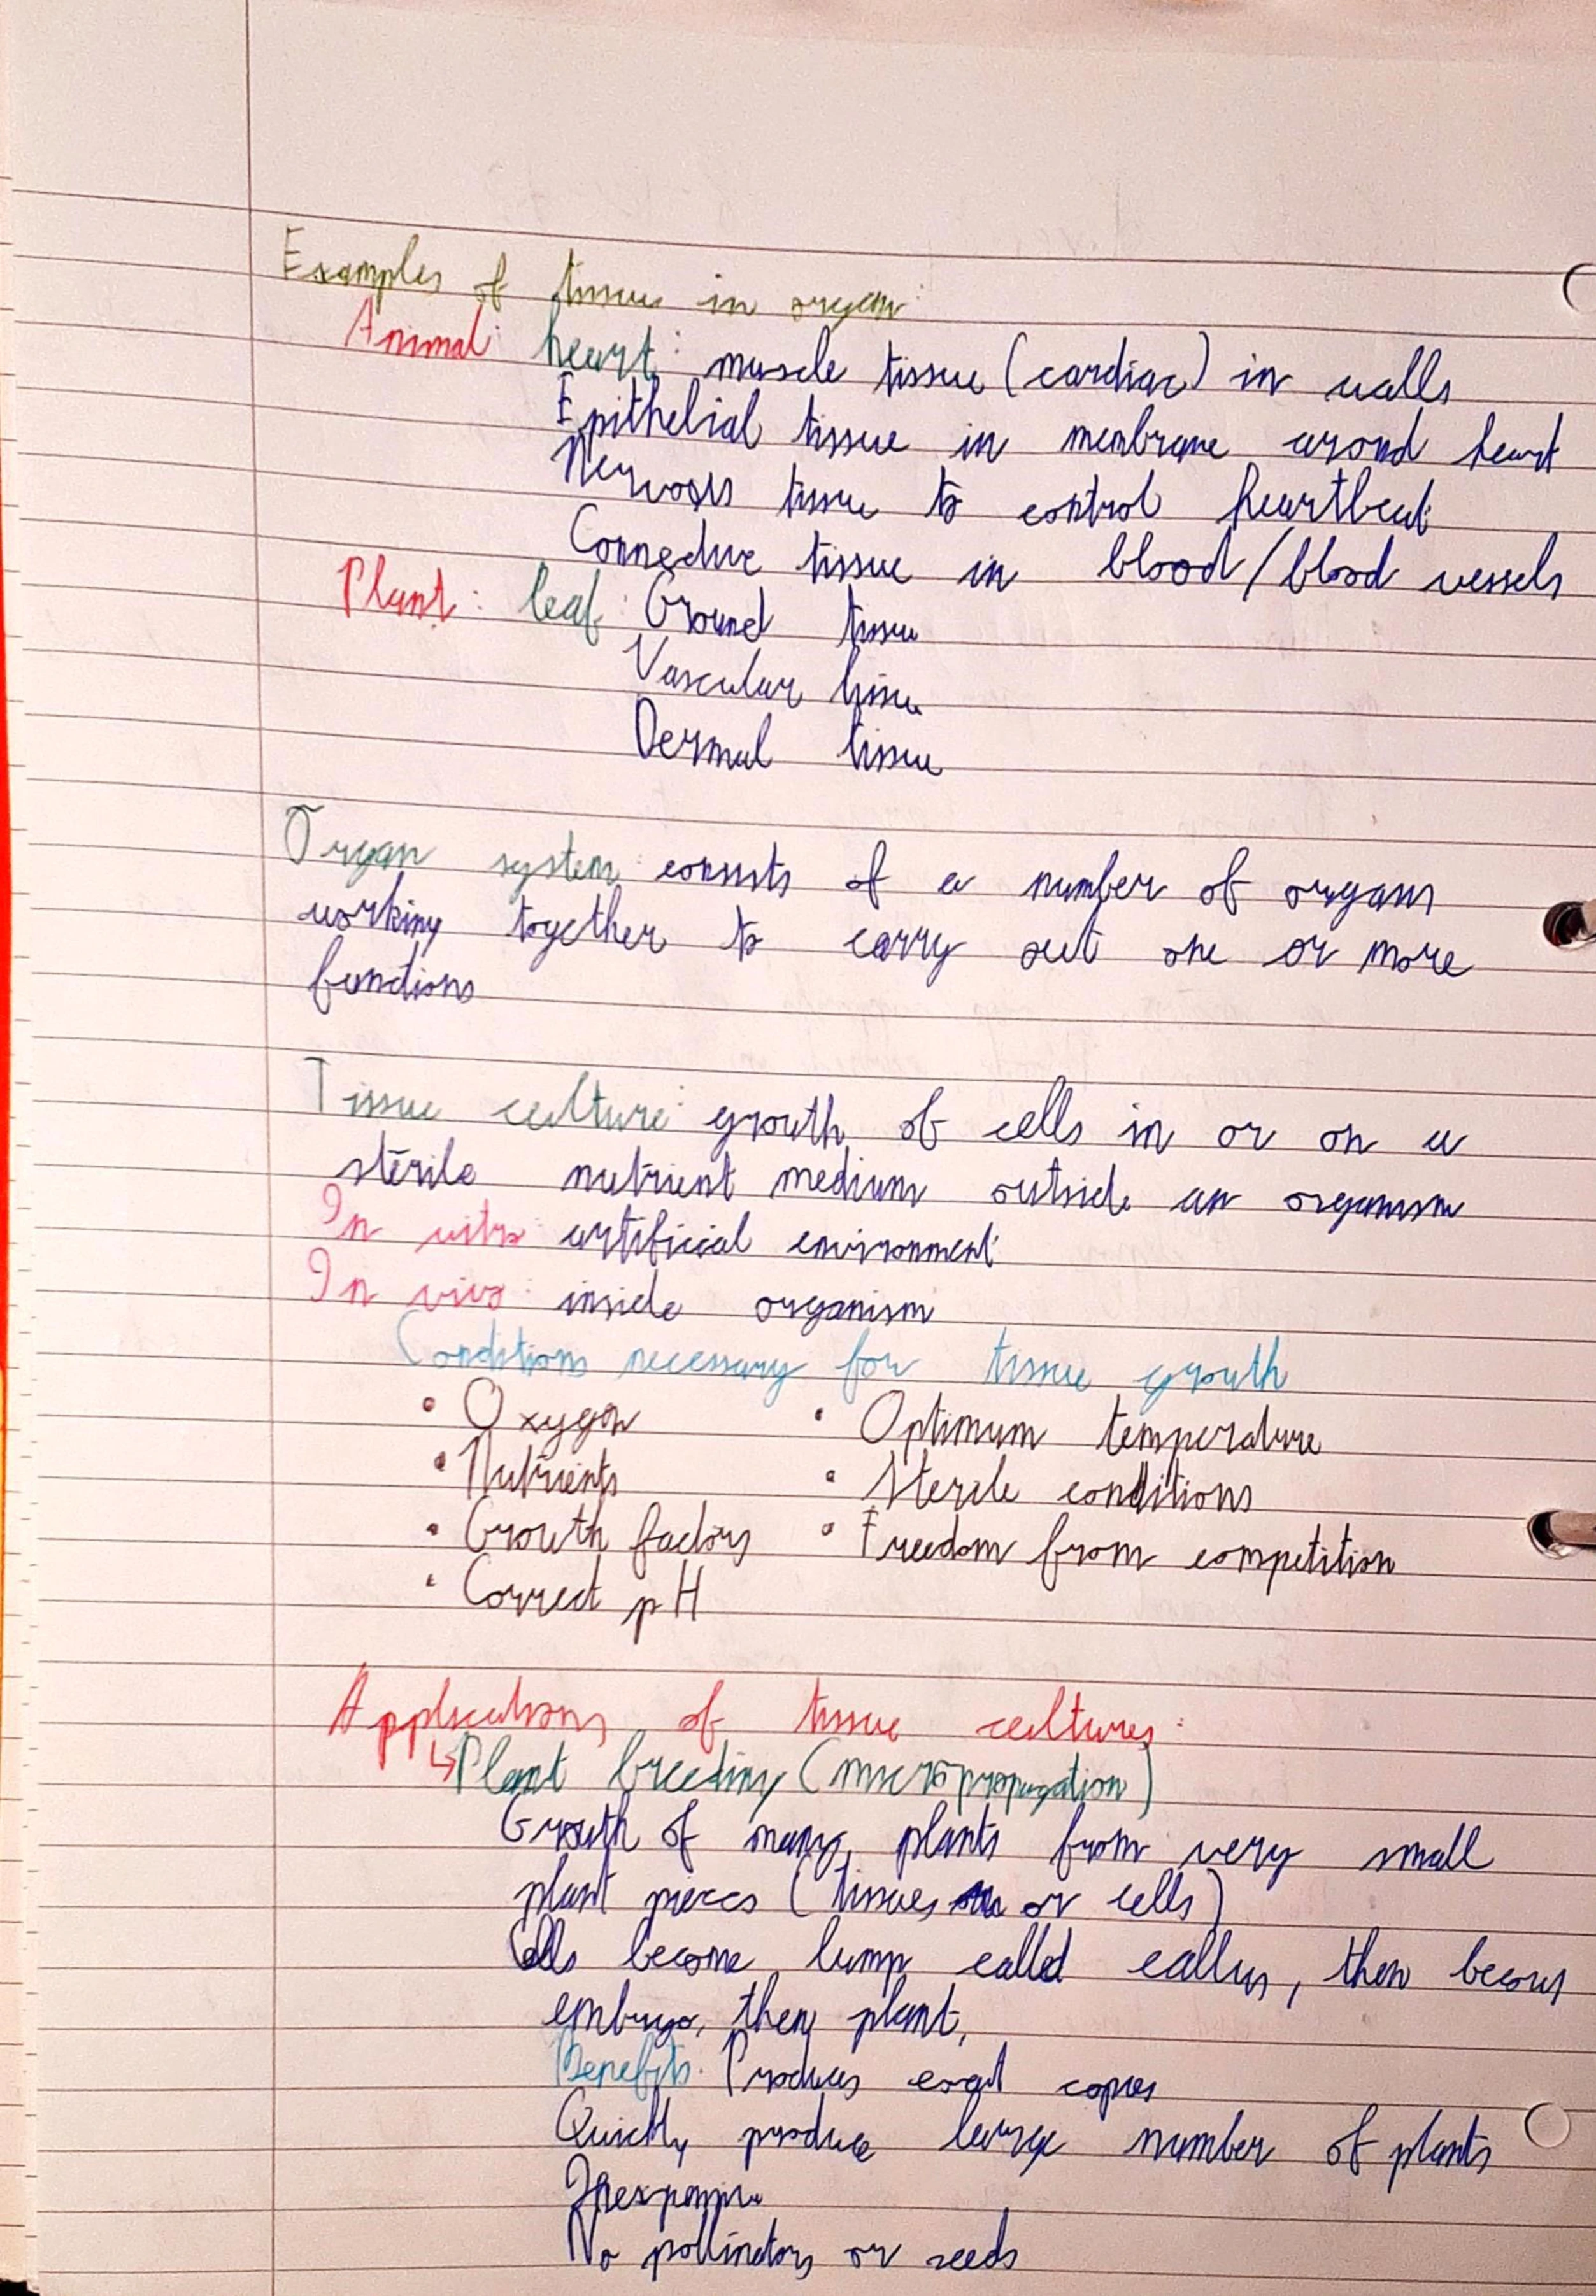 Examples of tissues in organ:
Animal: heart: muscle tissue (cardiac) in walls
Epithelial tissue in membrane arond heart
Nervous tissue to control heartbeat
Connective tissue in blood/blood vessels
Plant: leaf: Ground tissue
Vascular tissue
Dermal tissue
Organ system: consists of a number of organs
working together to carry out one or more
functions
Tissue culture: growth of cells in or on a
sterile nutrient medium outside an organism
In vitro: artificial environment
In vivo: inside organism
Conditions necessary for tissue growth
• Oxygen • Optimum temperature
• Nutrients • Sterile conditions
• Growth factors • Freedom from competition
• Correct pH
Applications of tissue cultures:
↳ Plant breeding (micropropagation)
Growth of many plants from very small
plant pieces (tissues or cells)
Cells become lump called callus, then becomes
embryo, then plant,
Benefits: Produces exact copies
Quickly produce large number of plants
Inexpensive
No pollinators or seeds